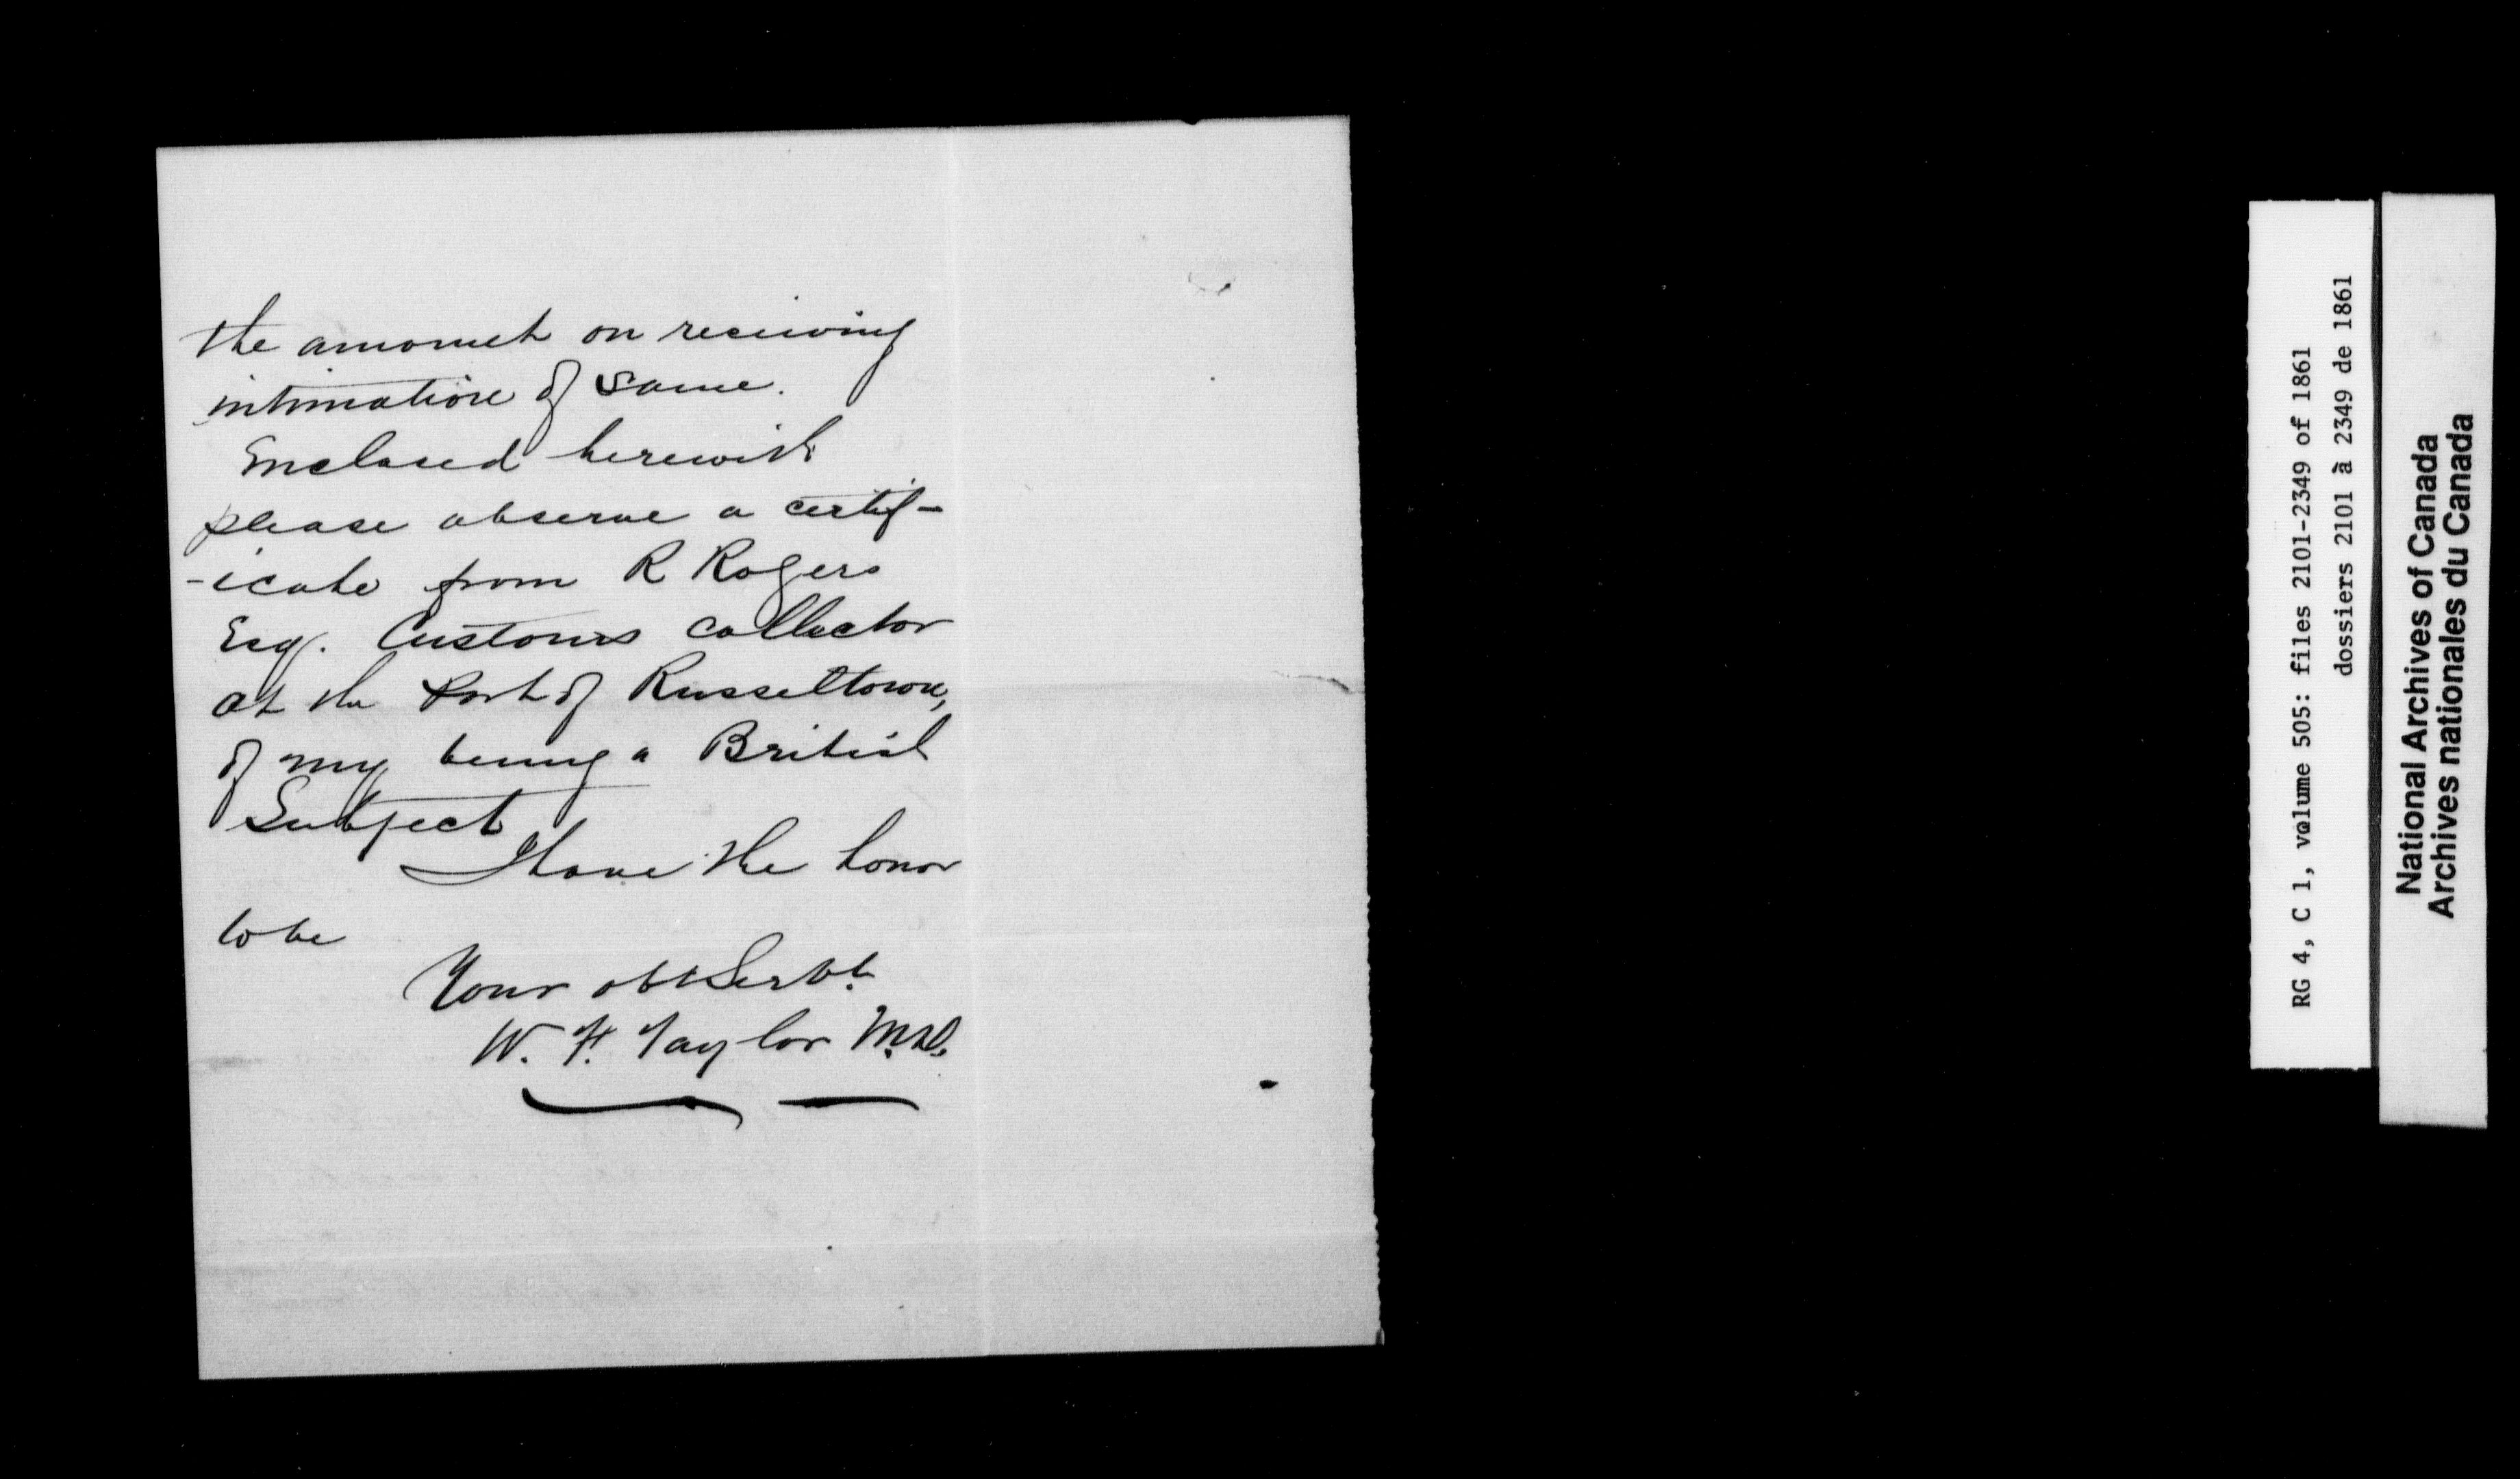 the amount on receiving
intimation of same.
Enclosed herewith
please observe a certif-
-icate from R Rogers
Esq. Customs collector
at the Port of Russeltown,
of my being a British
Subject
I have the honor
to be
Your obt Servt.
W. H. Taylor M.D.
RG 4, C 1, volume 505: files 2101-2349 of 1861
dossiers 2101 à 2349 de 1861
National Archives of Canada
Archives nationales du Canada